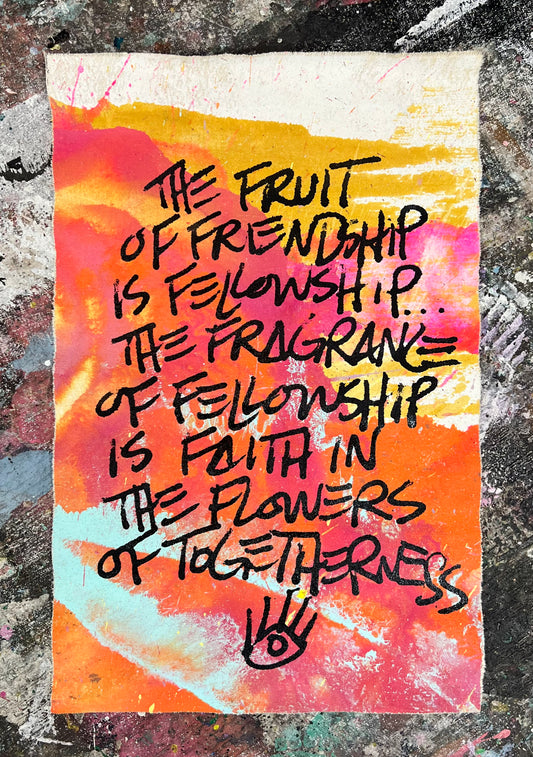 THE FRUIT
OF FRIENDSHIP
IS FELLOWSHIP...
THE FRAGRANCE
OF FELLOWSHIP
IS FAITH IN
THE FLOWERS
OF TOGETHERNESS